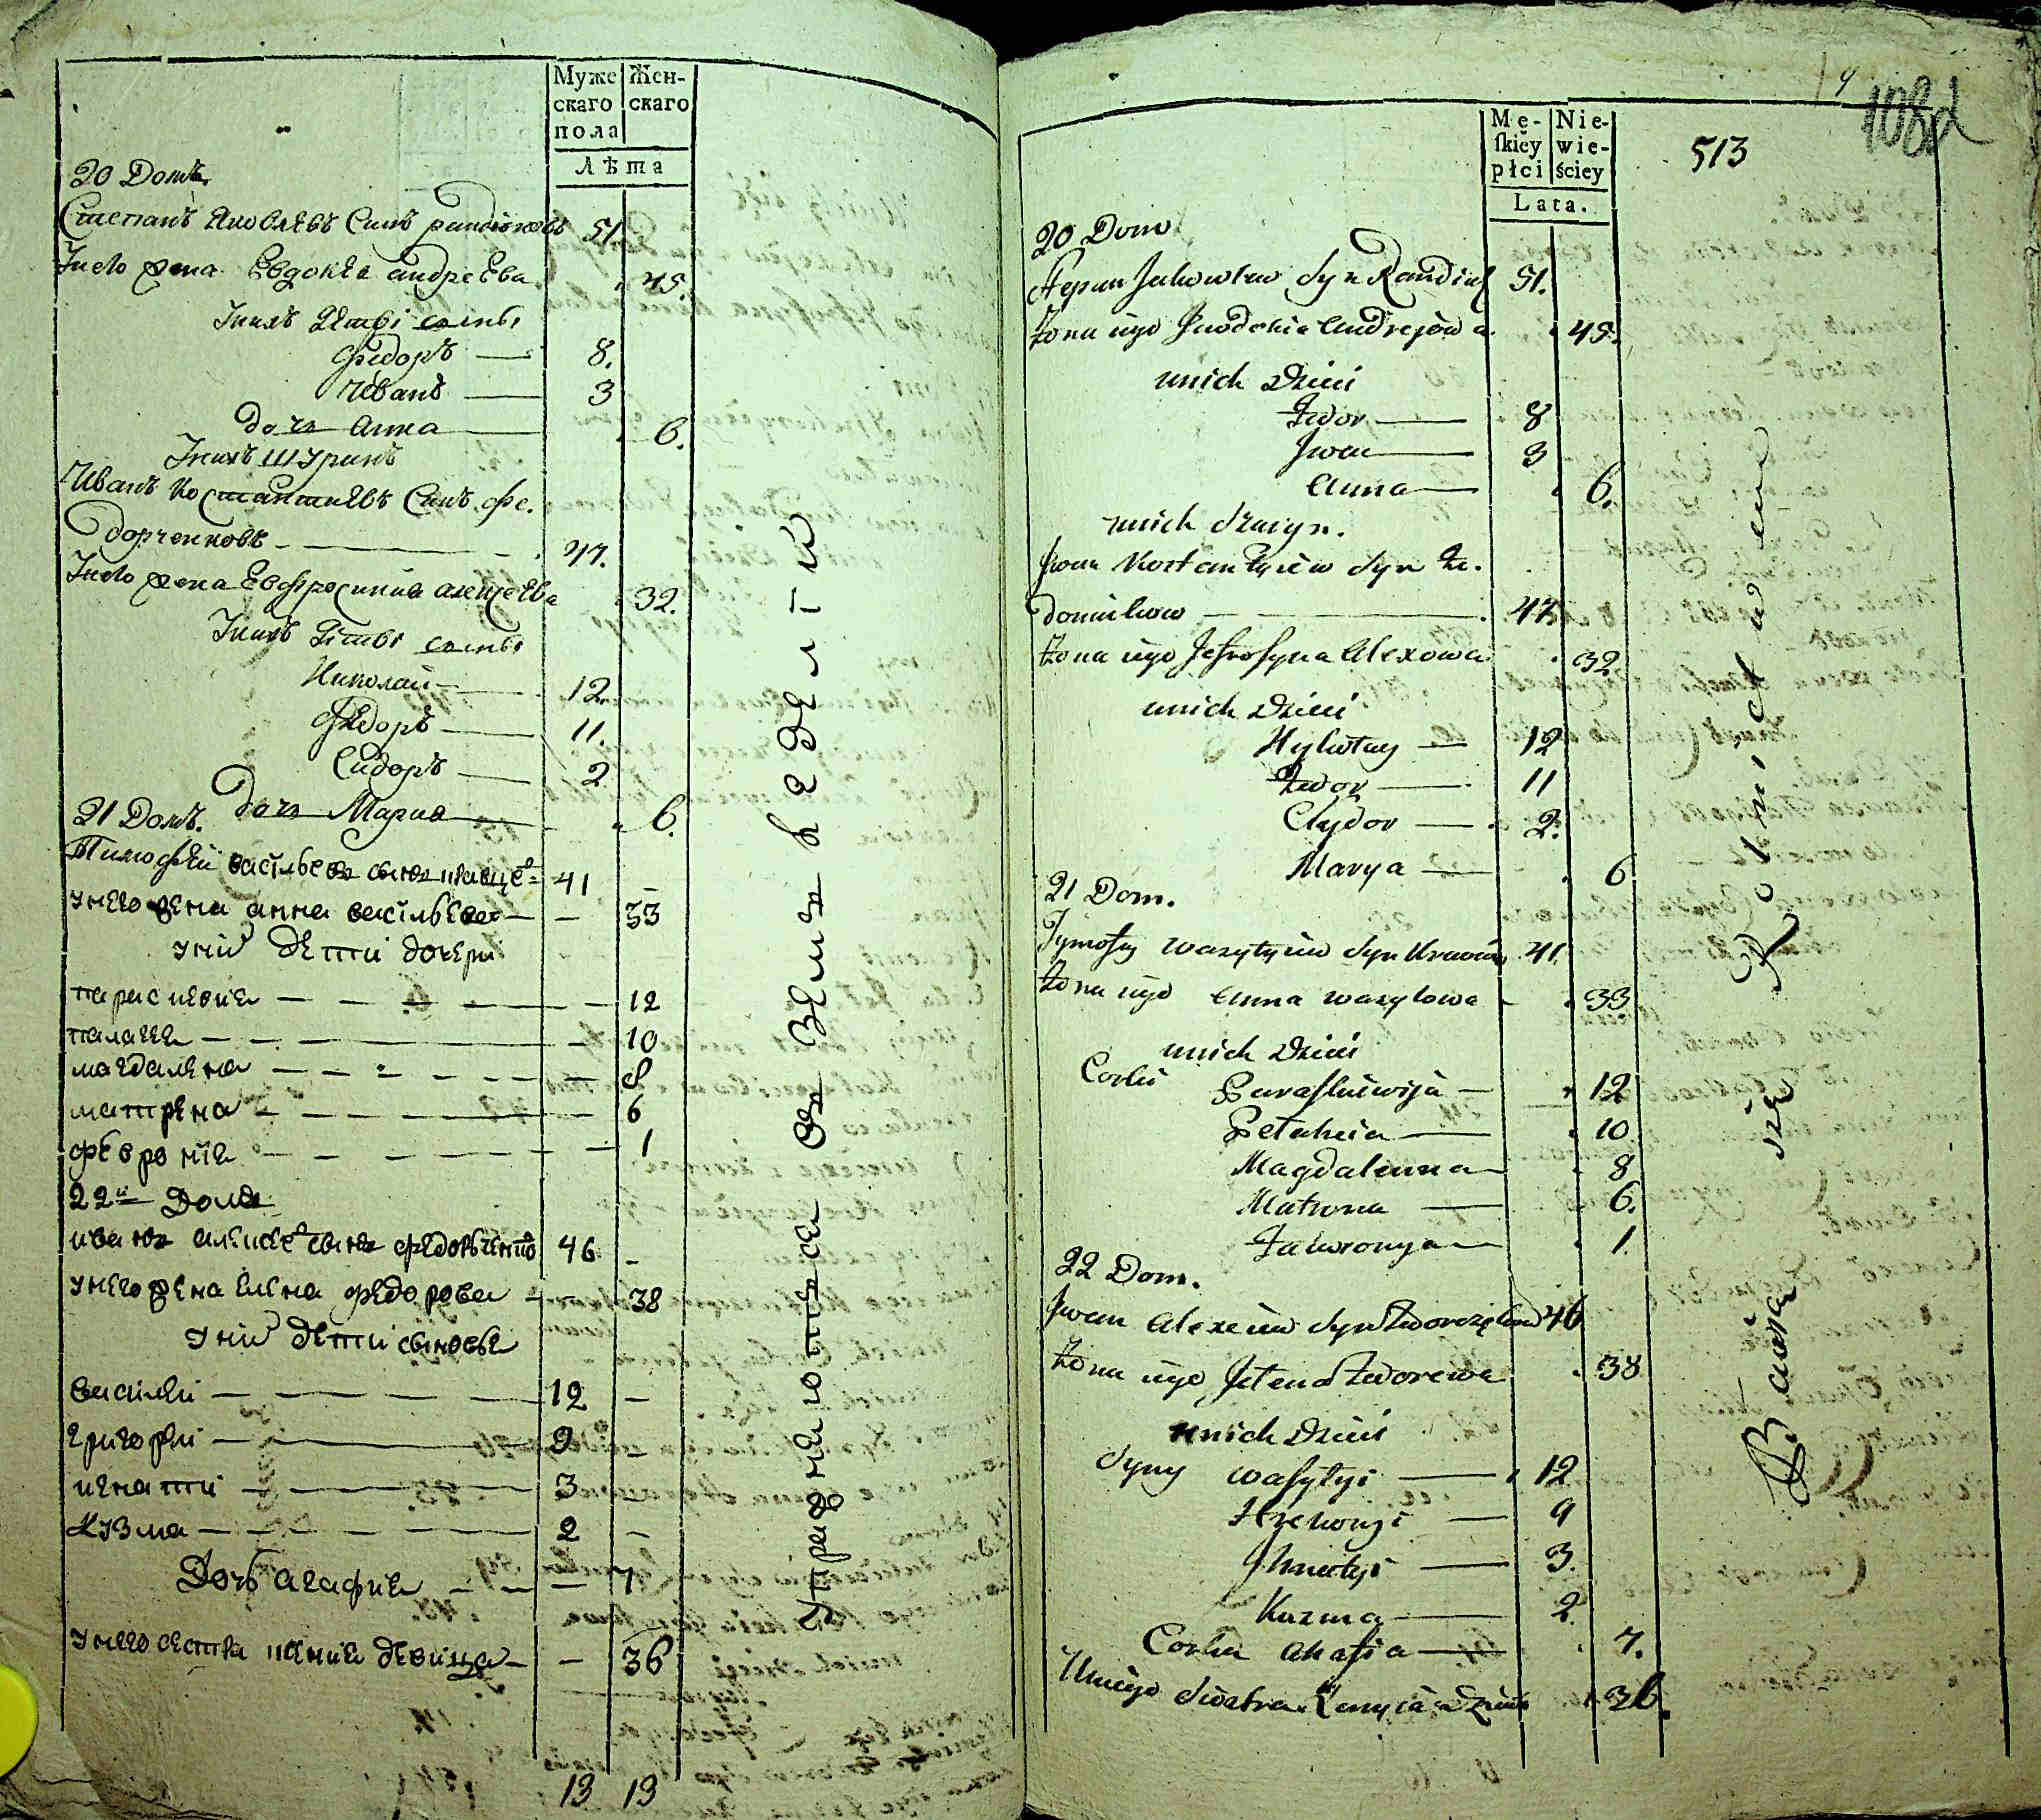 Муже
скаго
пола
Жен-
скаго
Лѣта
20 Домъ.
Степанъ Яковлевъ Синъ рандіковъ 51.
Унего жена Евдокѣя андреѣва 45.
Унихъ Дѣтѣі сыны
Федоръ — 8.
Иванъ — 3
дочь Анна — 6.
Унихъ шуринъ
Иванъ Костантиевъ Синъ фе.
дорченковъ — 47.
Унего жена Евфросиния алексеѣва 32.
Унихъ Дѣти сыны
Николай — 12.
Федоръ — 11.
Сидоръ — 2
дочь Мария — 6.
21 Домъ.
Тимофѣй васільевъ сынъ кравце 41 —
унего жена анна васільева — — 33
уних дѣти дочери
парасковия — 12
палагея — 10
магдалена — 8
матрена — 6
феврония — 1
22й Домъ
иванъ алексее сынъ федорченко 46 —
унего жена елена федорова — — 38
уних дѣти сыновья
василей — 12 —
григорей — 9 —
игнатий — 3 —
кузма — 2 —
Дочь агафия — — 7
унего сестра ксения девица — — 36
13 13
упражняютъся въ земл
Mę-
ſkiey
płci
Nie-
wie-
ściey
Lata.
513
108d
20 Dom
Stepan Jakowlew Syn Randik 51.
żona iego Jewdokia Andrejowa 45.
unich Dzieci
Fedor — 8
Iwan — 3
Anna — 6.
unich szuryn.
Iwan Kostantyiew Syn Fe.
47.
żona iego Jefrosyna Alexowa 32
unich Dzieci
Mykołay — 12
Fedor — 11
Sydor — 2.
Marya — 6
21 Dom.
Tymofiy Wasylyiew Syn 41.
żona iego Anna Wasylowa 33.
unich Dzieci
Corki Paraskiewija — 12
Pelahia — 10
Magdalenna 8
Matrona — 6.
Fewronya 1.
22 Dom.
Iwan Alexeiew Syn 46
żona iego Jelena Fedorowa 38
unich Dzieci
Syny Wasylyi — 12
Hrehoryi — 9
Ihnatyi — 3.
Kuzma — 2.
Corka Ahafia — 7.
Uniego Siostra Xenyia 36.
Bawią się Rolnictwem